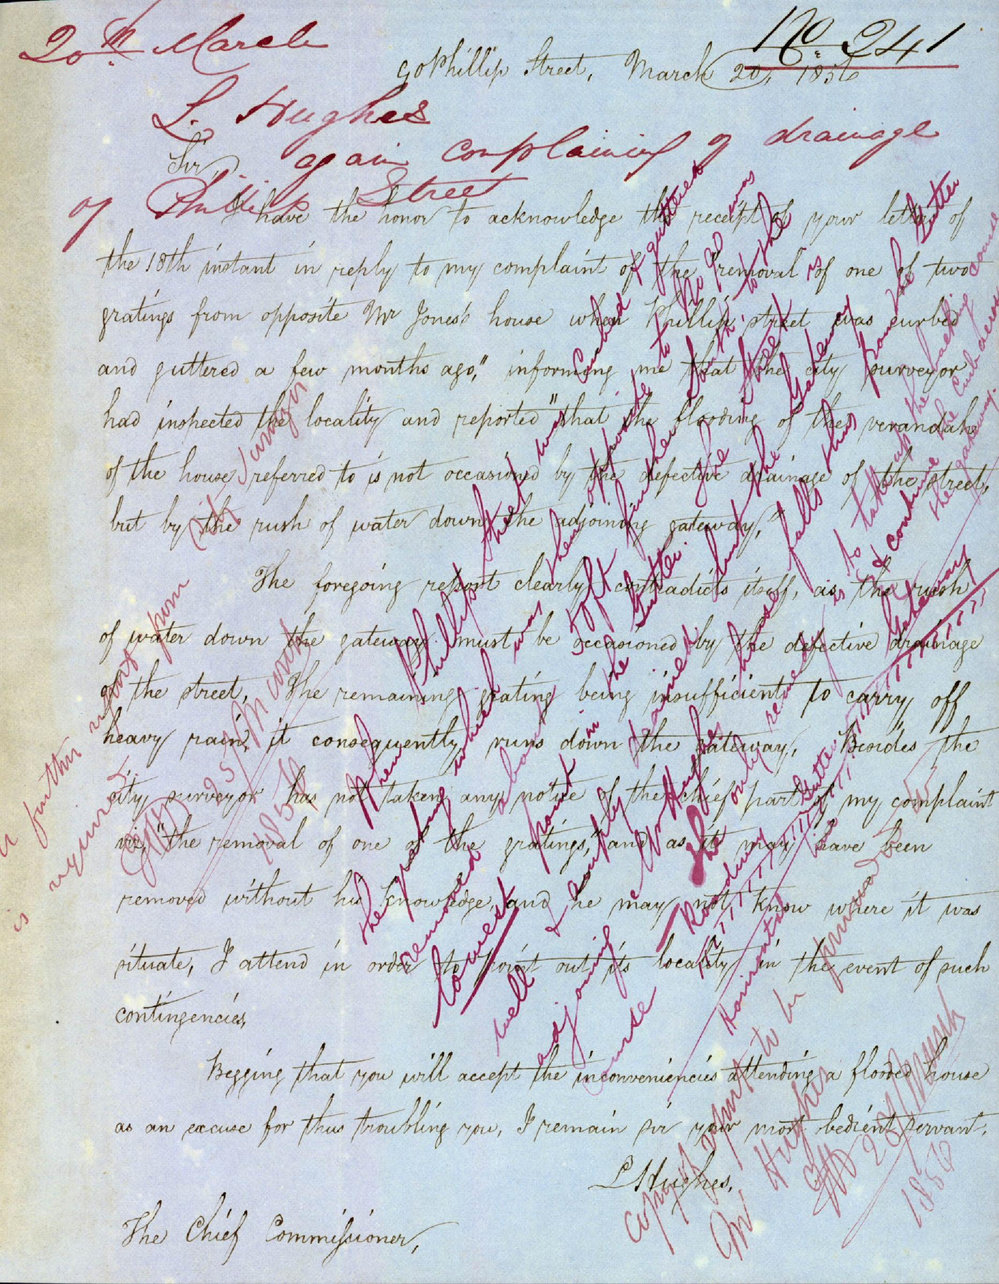 No. 241
20th March
90 Phillip Street, March 20, 1856
L. Hughes
Sir,
again complaining of drainage
of Phillip Street
I have the honor to acknowledge the receipt of your letter of
the 18th instant in reply to my complaint of the "removal of one of two
gratings from opposite Mr Jones's house when Phillip street was curbed
and guttered a few months ago," informing me that the city surveyor
had inspected the locality and reported "that the flooding of the verandahs
of the house referred to is not occasioned by the defective drainage of the street,
but by the rush of water down the adjoining gateway,"
The foregoing report clearly contradicts itself, as the rush
of water down the gateway must be occasioned by the defective drainage
of the street, The remaining grating being insufficient to carry off
heavy rain, it consequently runs down the gateway, Besides the
city surveyor has not taken any notice of the chief part of my complaint
viz, "the removal of one of the gratings," and as it may have been
removed without his knowledge and he may not know where it was
situate, I attend in order to point out its locality in the event of such
contingencies,
Begging that you will accept the inconveniencies attending a flooded house
as an excuse for thus troubling you, I remain sir your most obedient servant,
L Hughes,
The Chief Commissioner,
When Phillip Street was Curbed & guttered
the grating which was then opposite to No 90 was
removed about 50ft further South to the
lowest point in the Gutter. The Street is
well & amply drained. but the Gateway
adjoining Mr Hughes house falls thus from the Gutter
The only remedy is to take up the backing course
& continue the Curb across
the gateway
Roadway
Gutter
Gateway
Horizontal line
A further report from
City Surveyor
is required
25 March
1856
Copy of report to be forwarded to
Mr Hughes
28 March
1856